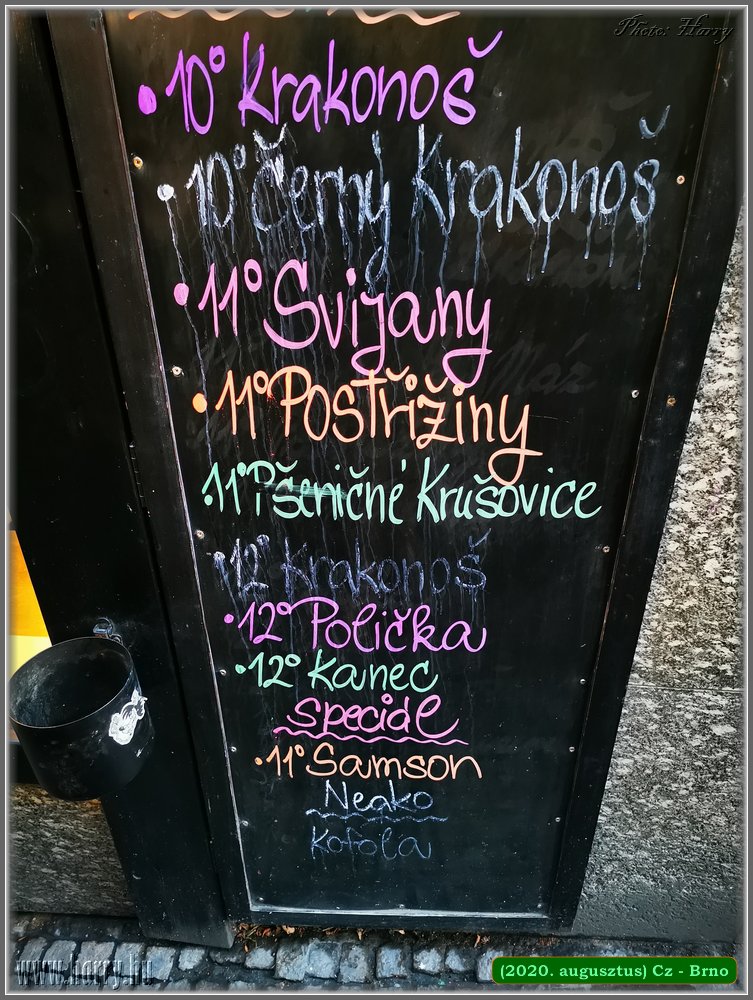 Photo: Horry
• 10° Krakonoš
• 10° Černý Krakonoš
• 11° Svijany
• 11° Postřižiny
• 11° Pšeničné Krušovice
• 12° Krakonoš
• 12° Polička
• 12° Kanec
speciál
• 11° Samson
Nealko
Kofola
www.horry.hu
(2020. augusztus) Cz - Brno